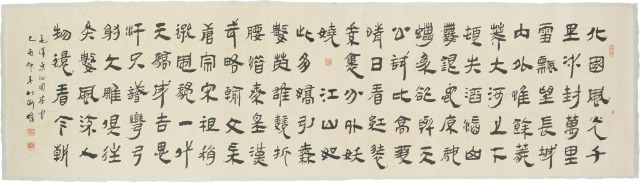 北國風光千
里冰封萬里
雪飄望長城
內外惟餘莽
莽大河上下
頓失滔滔山
舞銀蛇原馳
蠟象欲與天
公試比高須
晴日看紅裝
素裹分外妖
嬈 江山如
此多嬌引無
數英雄競折
腰惜秦皇漢
武略輸文采
唐宗宋祖稍
遜風騷一代
天驕成吉思
汗只識彎弓
射大雕俱往
矣數風流人
物還看今朝
毛澤東沁園春雪
乙酉